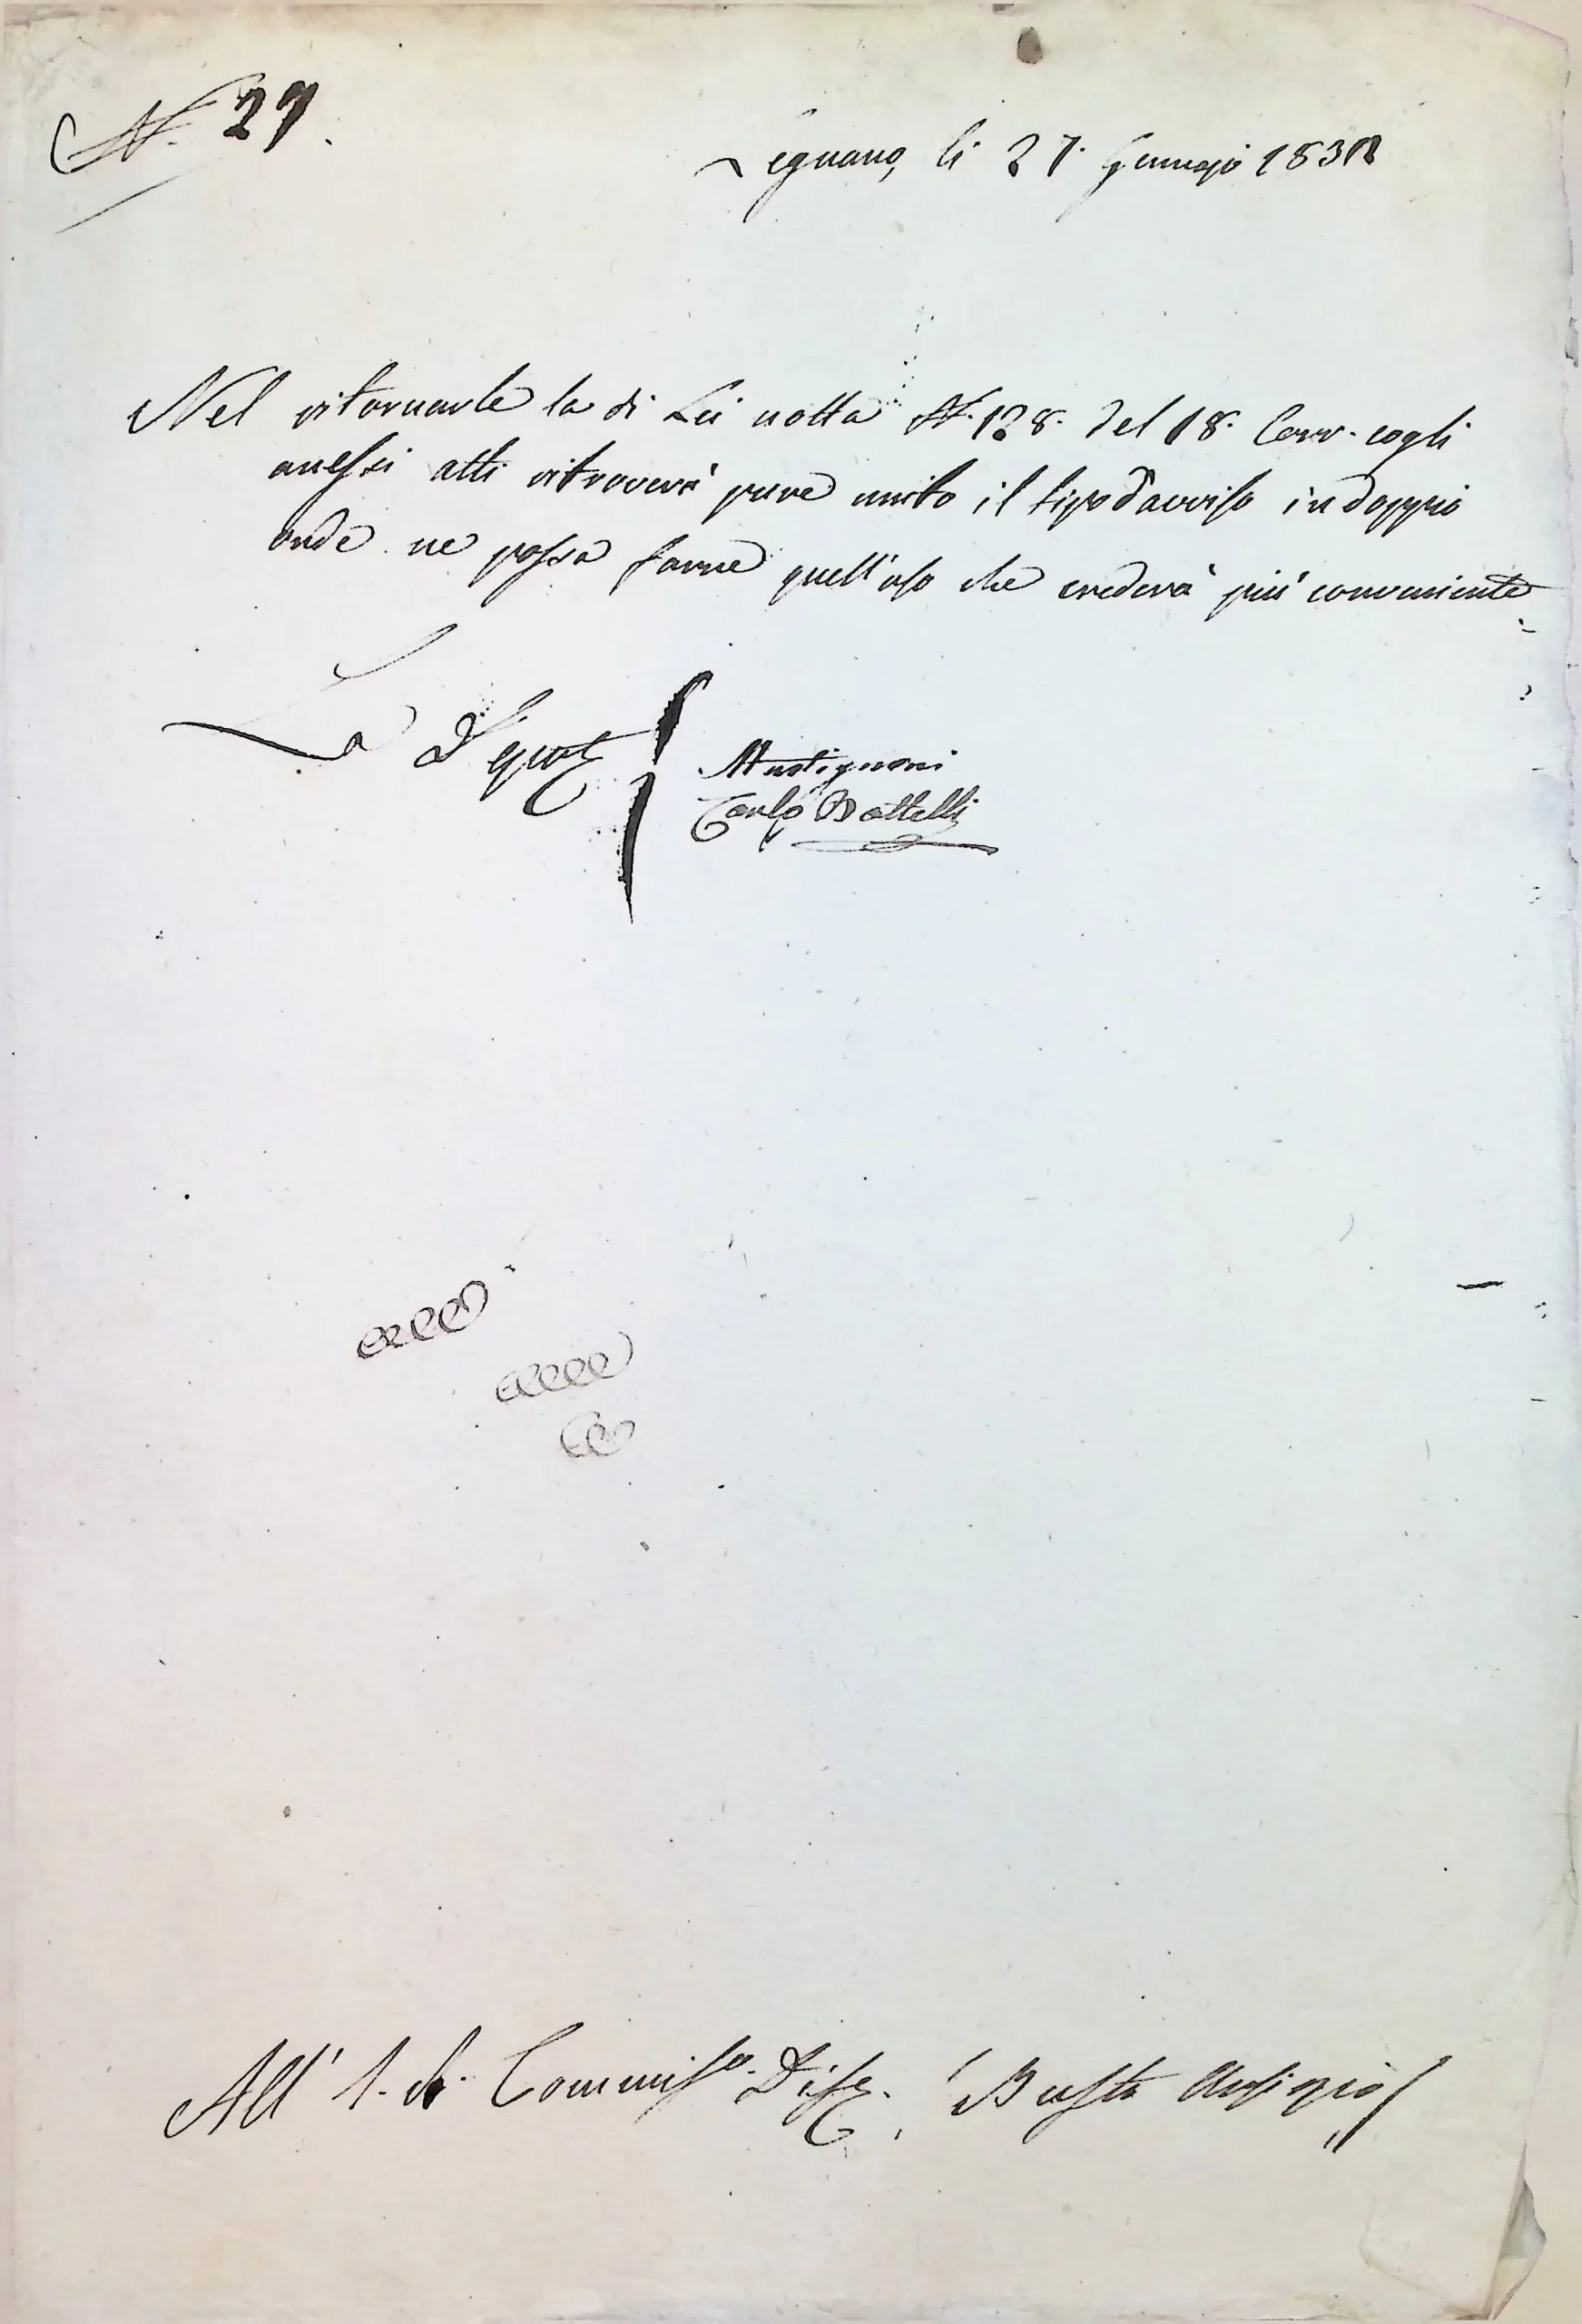 N. 27.
Legnano, li 27. Gennajo 1832
Nel ritornarle la di Lei notta N. 128. del 18. Corr. cogli
anessi atti ritroverà pure unito il tipo d'avviso in doppio
onde ne possa farne quell'uso che crederà più conveniente
La Deput.
Carlo Battelli
All' I. R. Commiss.o Dist. Busto Arsizio